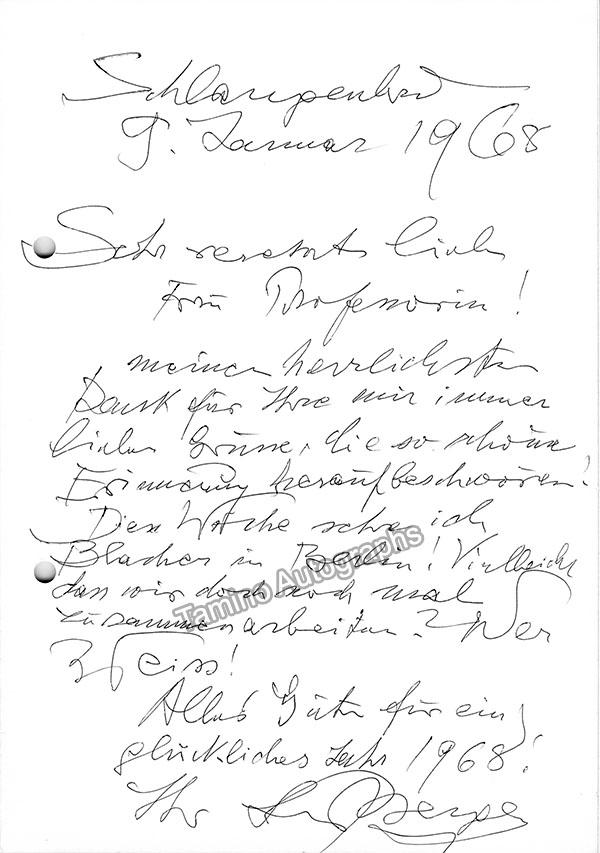 Schlangenbad
9. Januar 1968
Sehr verehrte liebe
Frau Professorin!
meinen herzlichsten
Dank für Ihre mir immer
lieben Grüsse, die so schöne
Erinnerung heraufbeschwören!
Diese Woche sehe ich
Blacher in Berlin! Vielleicht
dass wir doch noch mal
zusammenarbeiten? Wer
weiss!
Alles Gute für ein
glückliches Jahr 1968!
Ihr
Tamino Autographs